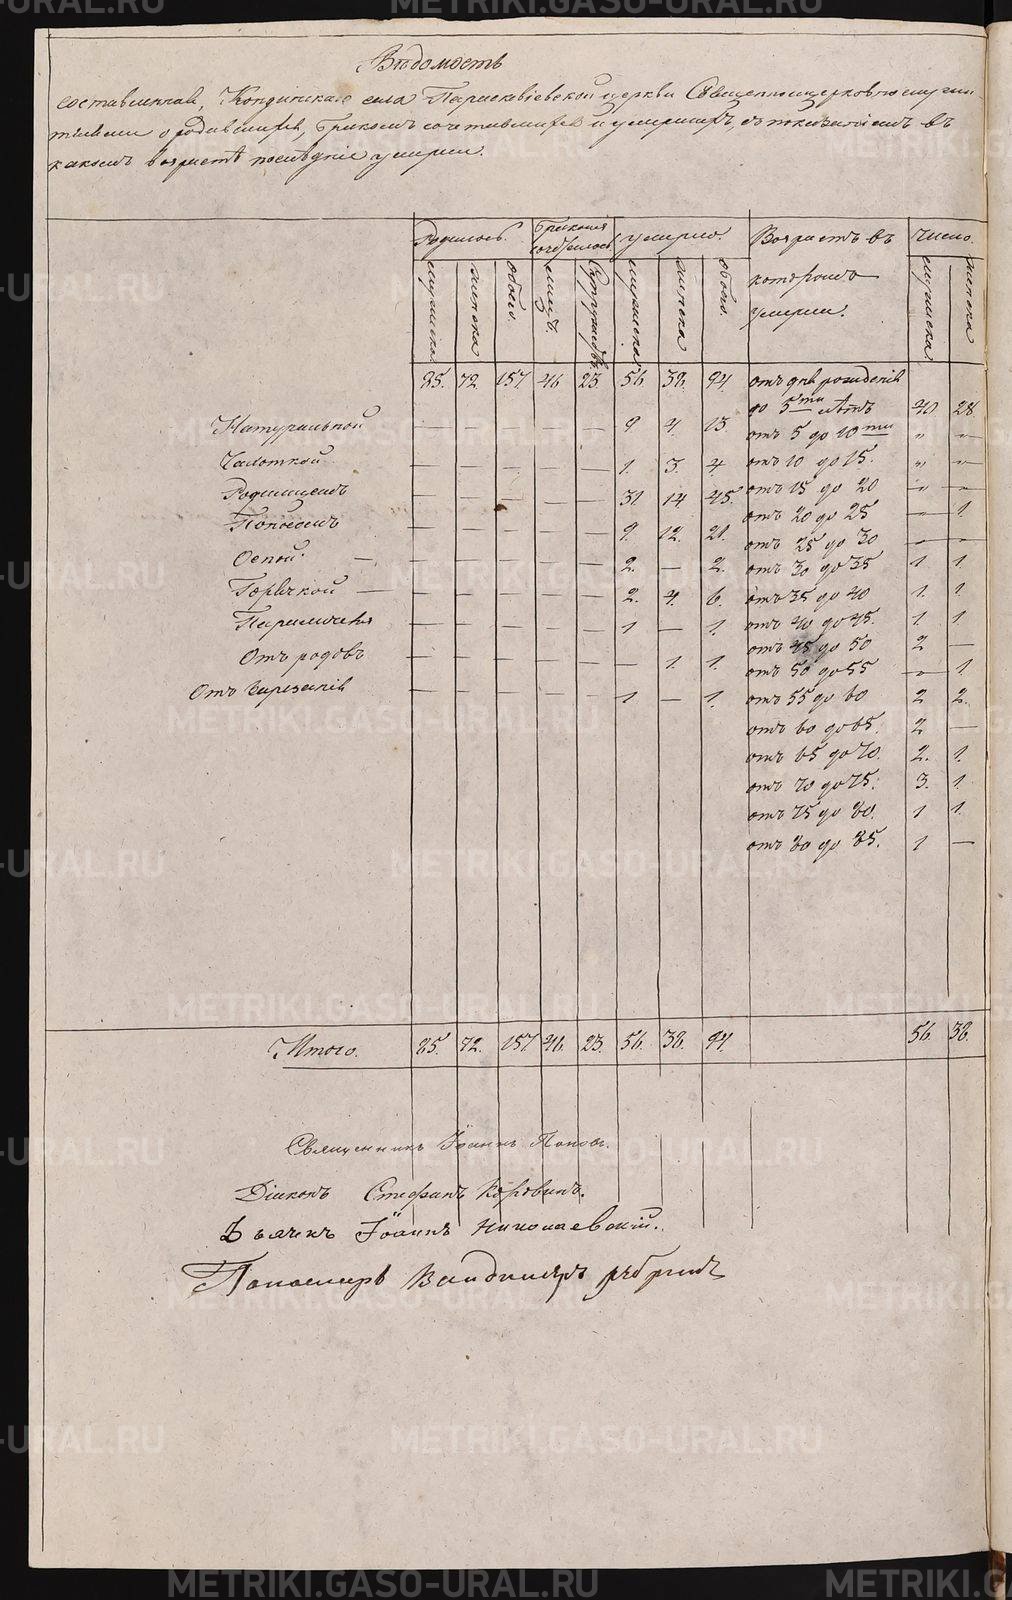 Вѣдомость
составленная, Кондинскаго села Параскевіевской церкви Священноцерковнослужи
телями о родившихся, бракомъ сочетавшихся и умершихъ, съ показаніемъ въ
какомъ возрастѣ послѣдніе умерли.
Родилось. Бракомъ сочеталось умерло. Возрастъ въ котором умерли. Число.
мужеска женска обоего. лицъ. супружествъ. мужеска женска обоего. мужеска женска
85. 72 157 46 23. 56. 38. 94. отъ дня рожденія
до 5ти лѣтъ 40 28.
Натуральной — — — — — 9 4. 13. отъ 5 до 10ти „ —
Чахоткой — — — — — 1. 3. 4 отъ 10 до 15. „ —
Родимцемъ — — — — — 31. 14 45. отъ 15 до 20 — —
отъ 20 до 25 — 1.
Поносомъ — — — — — 9. 12. 21. отъ 25 до 30 — —
Оспой. — — — — — — 2. — 2. отъ 30 до 35 1 1.
Горячкой — — — — — — 2. 4. 6. отъ 35 до 40 1. 1.
Параличемъ — — — — — 1 — 1. отъ 40 до 45. 1. 1
отъ 45 до 50 2 —
Отъ родовъ — — — — — — 1. 1. отъ 50 до 55 — 1.
Отъ — — — — — 1 — 1. отъ 55 до 60 2 2.
отъ 60 до 65. 2 —
отъ 65 до 70. 2. 1.
отъ 70 до 75. 3. 1.
отъ 75 до 80. 1 1.
отъ 80 до 85. 1 —
Итого. 85. 72. 157 46. 23. 56. 38. 94. 56. 38.
Священникъ Іоаннъ Поповъ.
Діаконъ Стефанъ Коровинъ.
Дьячекъ Іоаннъ Николаевскій.
Пономарь
METRIKI.GASO-URAL.RU